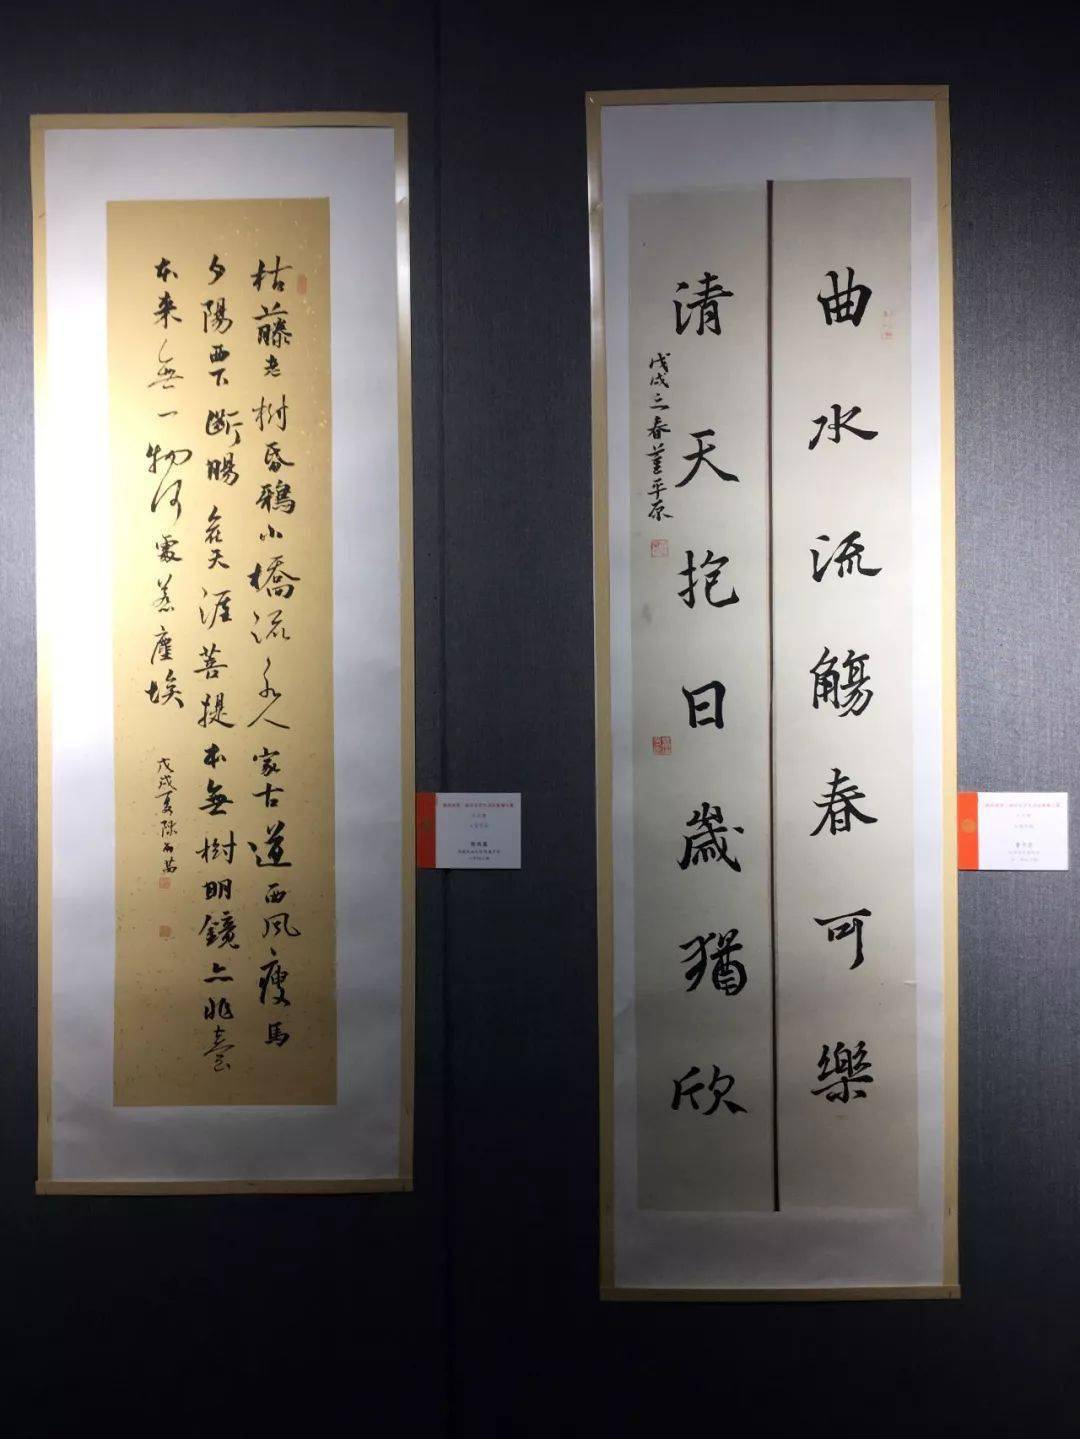 枯藤老樹昏鴉小橋流水人家古道西風瘦馬
夕陽西下斷腸在天涯菩提本無樹明鏡亦非臺
本来無一物何處惹塵埃
戊戌夏陳
曲水流觴春可樂
清天抱日歲猶欣
戊戌三春董平原